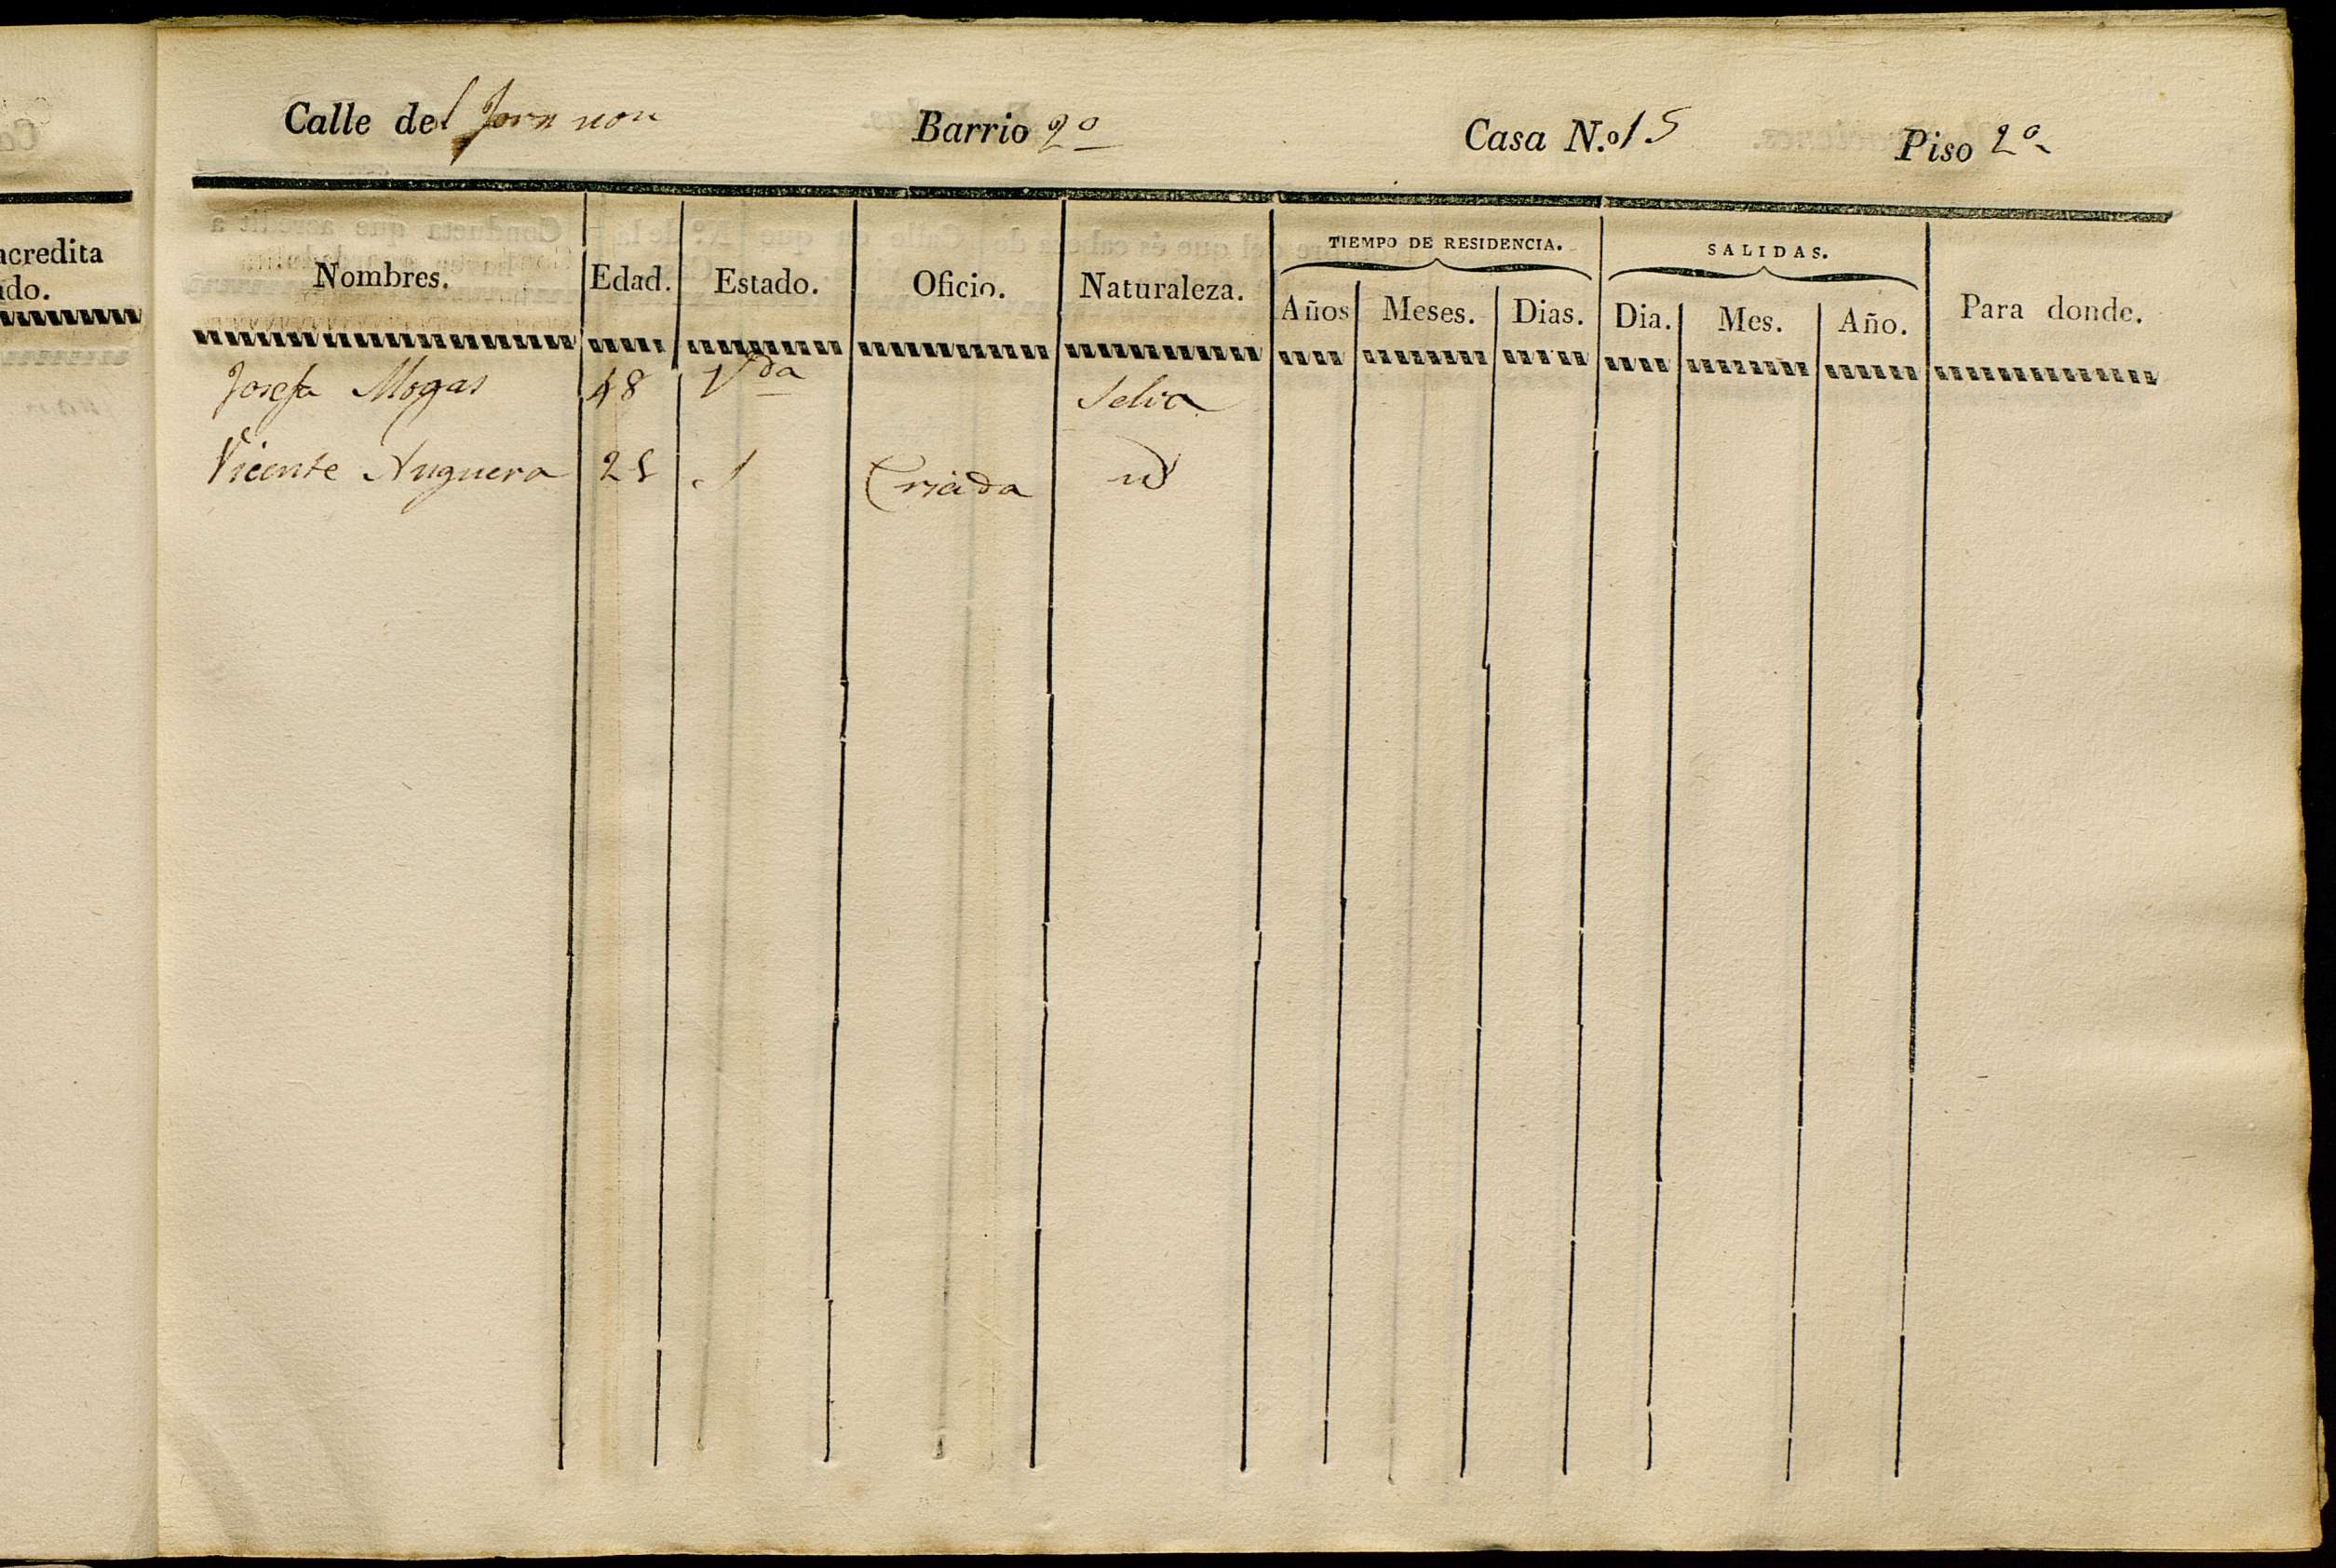 Calle del Forn nou Barrio 2º Casa N.º 15 Piso 2º
acredita
do.
Nombres. Edad. Estado. Oficio. Naturaleza. TIEMPO DE RESIDENCIA. SALIDAS. Para donde.
Años Meses. Dias. Dia. Mes. Año.
Josefa Mogas 48 Vda Selva
Vicente Nuguera 25 S Criada id